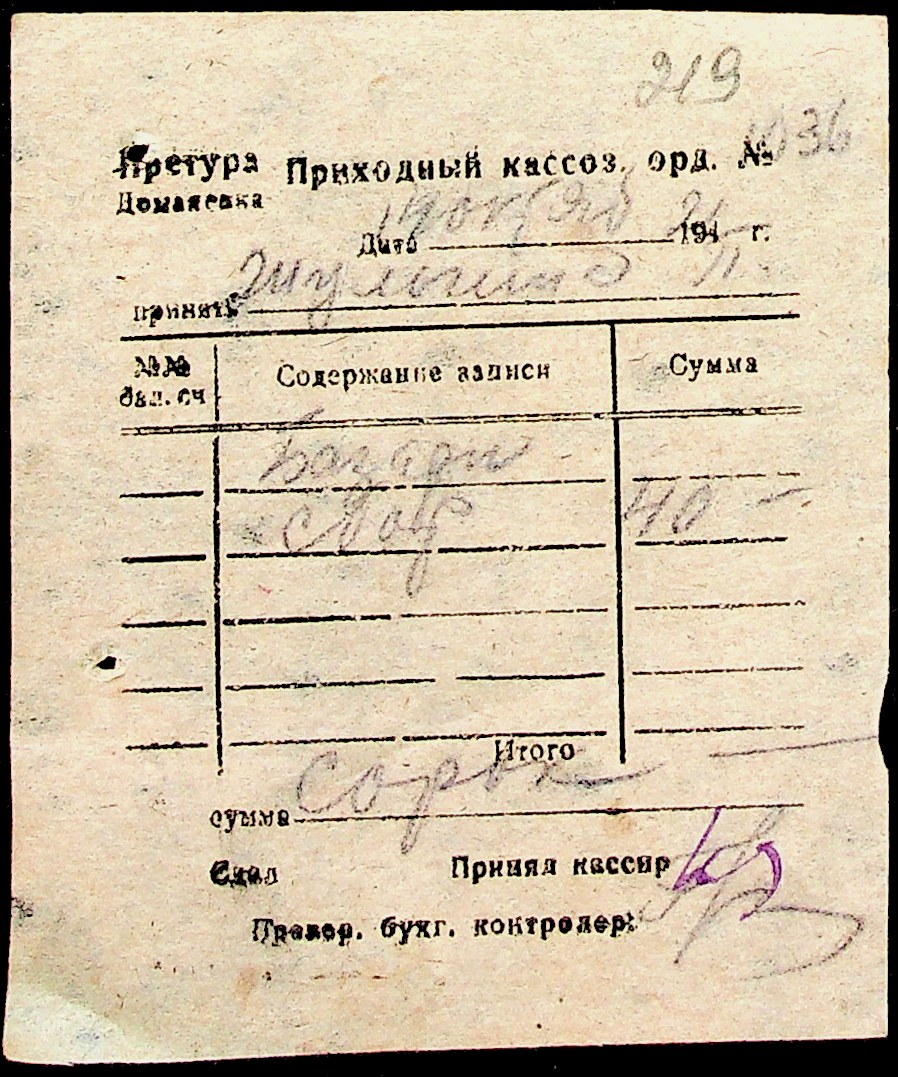 219
Претура Приходный кассов. орд. № 1036
Доманевка
Дата 194 г.
принять
№№ бал. сч Содержание записи Сумма
Базарн
сбор 40 —
Итого
сумма Сорок
Сдал Принял кассир
Провер. бухг. контролер: